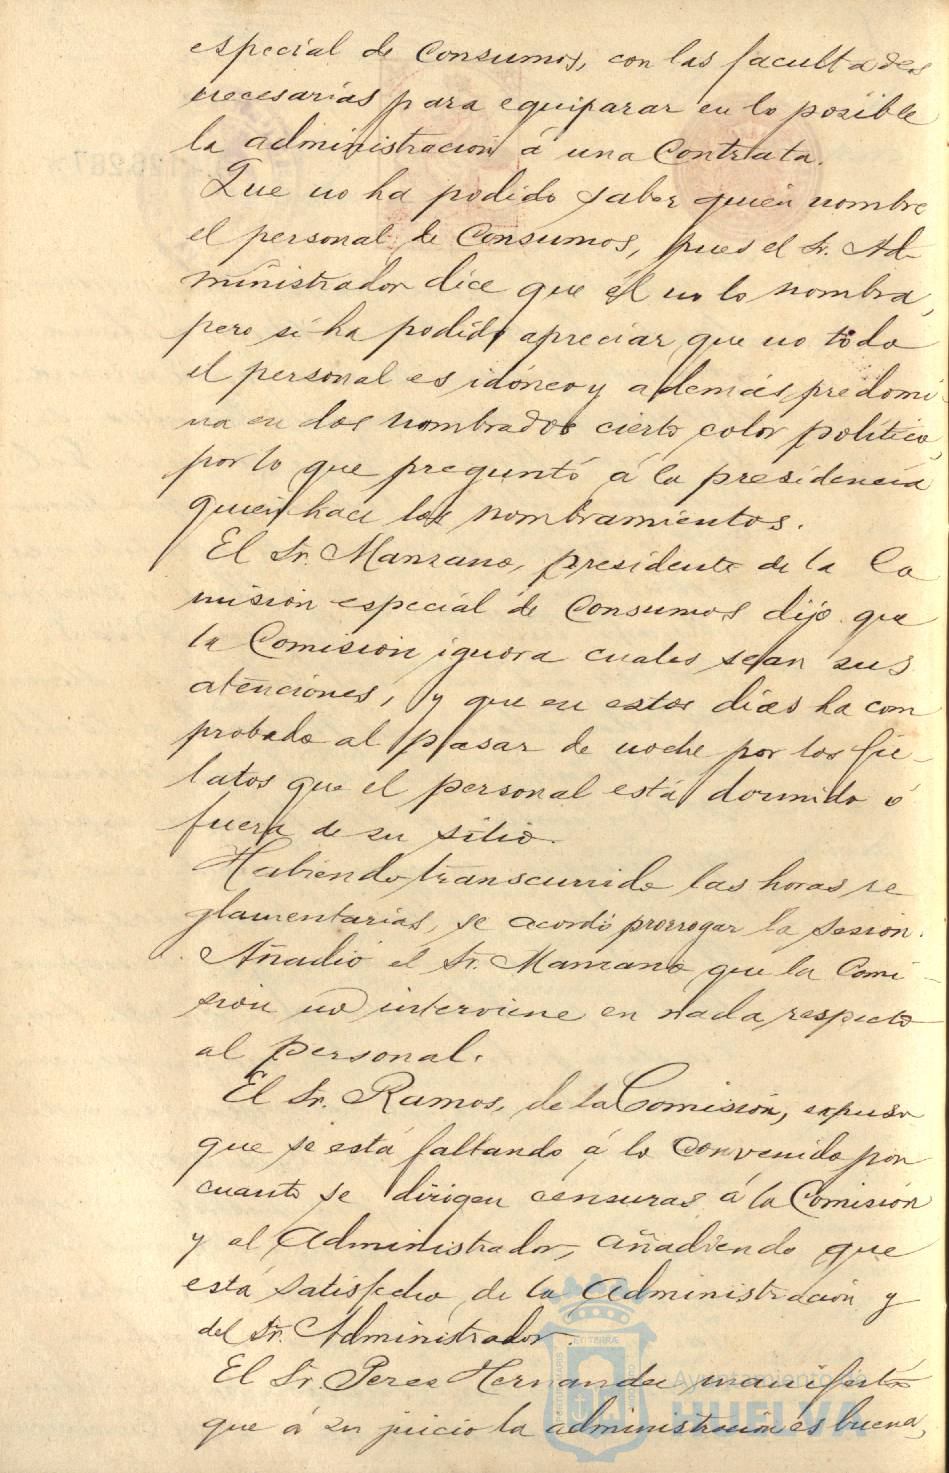 especial de Consumos, con las facultades
necesarias para equiparar en lo posible
la administracion á una Contrata.
Que no ha podido saber quien nombre
el personal de Consumos, pues el Sr. Ad-
ministrador dice que él no lo nombra,
pero si ha podido apreciar, que no todo
el personal es idóneo y además predomi-
na en los nombrados cierto color político,
por lo que preguntó á la presidencia
quien hace los nombramientos.
El Sr. Manzano, presidente de la Co
misión especial de Consumos dijo que
la Comision ignora cuales sean sus
atenciones, y que en estos días ha com
probado al pasar de noche por los fie-
latos que el personal está dormido ó
fuera de su sitio.
Habiendo transcurrido las horas re
glamentarias, se acordó prorrogar la sesion.
Añadió el Sr. Manzano que la Comi-
sión no interviene en nada respecto
al personal.
El Sr. Ramos, de la Comisión, expuso
que se está faltando á lo convenido por
cuanto se dirigen censuras á la Comisión
y al Administrador, añadiendo que
está satisfecho de la Administración y
del Sr. Administrador.
El Sr. Perez Hernandez manifestó
que á su juicio la administracion es buena,
Ayuntamiento de
HUELVA
126287